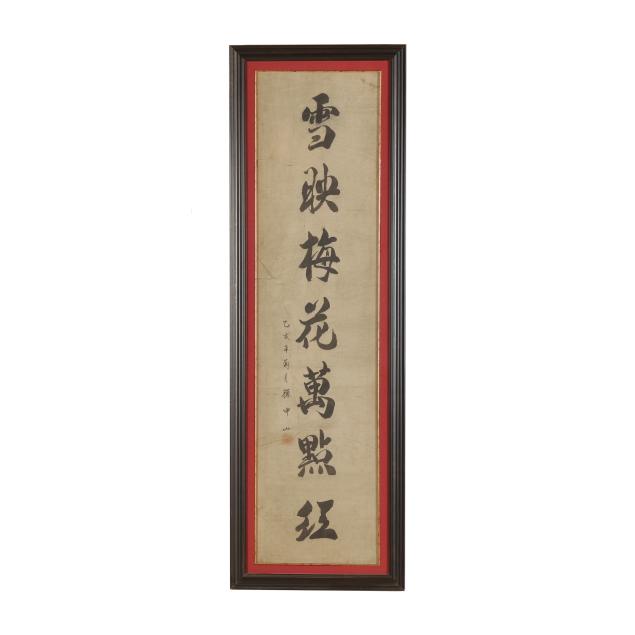 雪映梅花萬點紅
乙亥年菊月孫中山